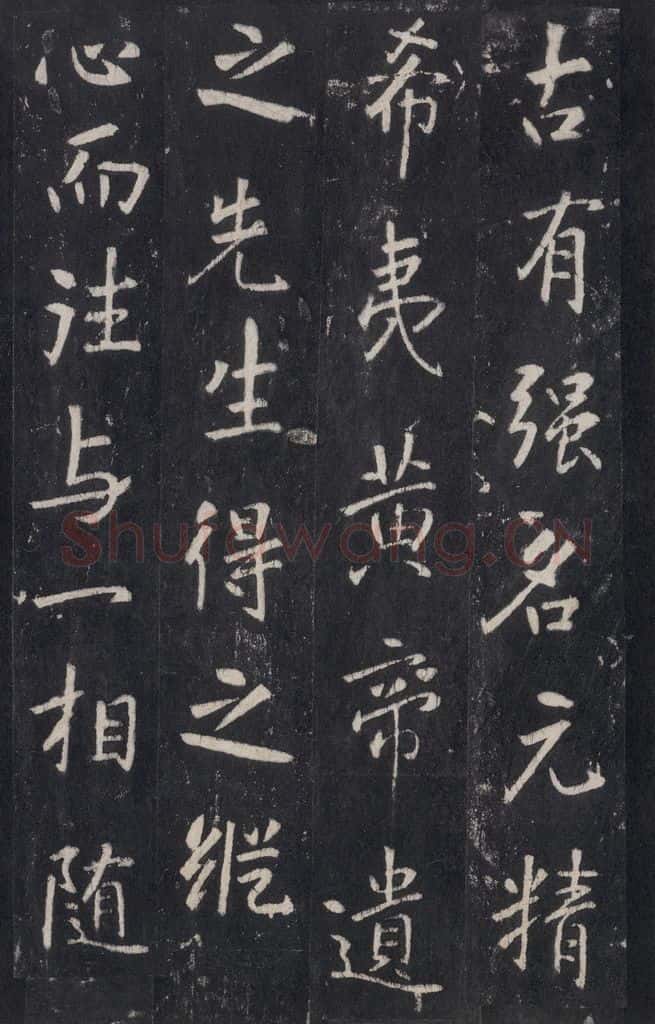 古有强名元精
希夷黄帝遺
之先生得之縱
心而往与一相随
Shufawang.CN